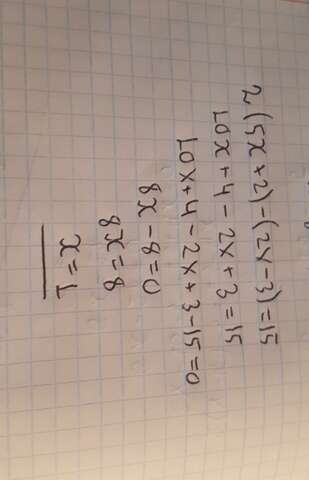 2(5x+2)-(2x-3)=15
10x+4-2x+3=15
10x+4-2x+3-15=0
8x-8=0
8x=8
x=1